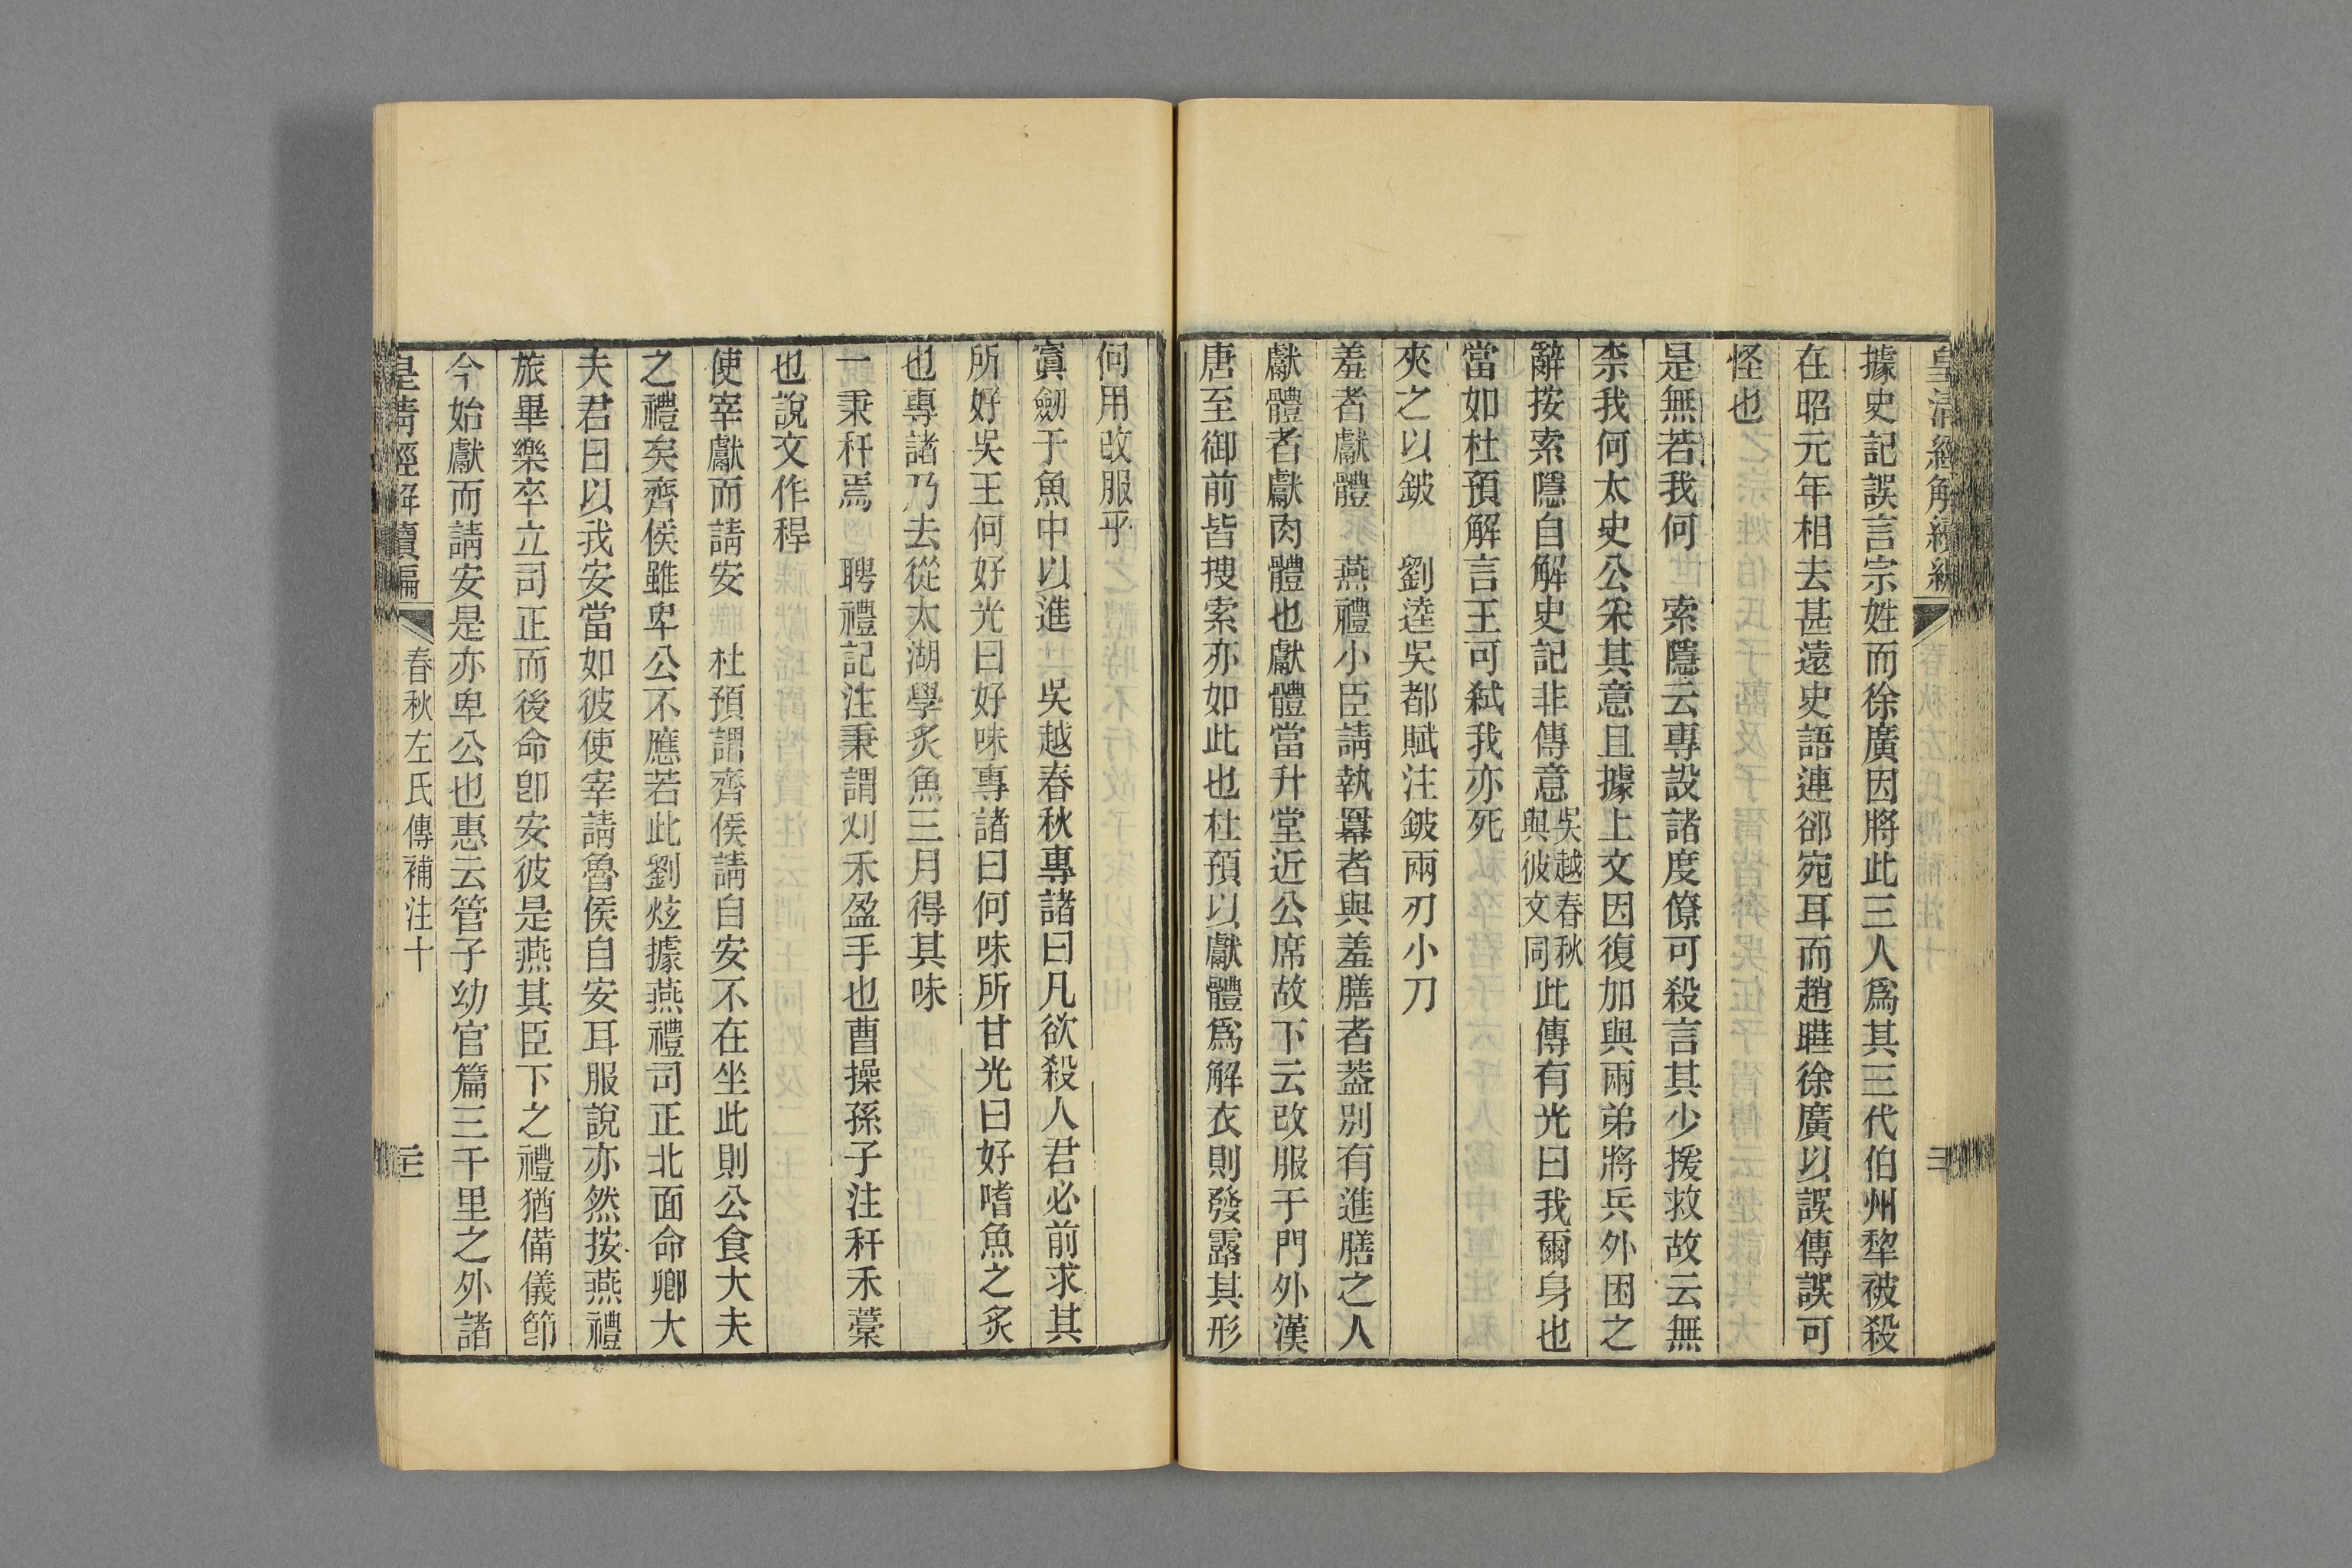 皇清經解續編
據史記誤言宗姓而徐廣因將此三人爲其三代伯州犂被殺
在昭元年相去甚遠史語連郤宛耳而趙曄徐廣以誤傳誤可
怪也
是無若我何　索隱云專設諸度僚可殺言其少援救故云無
柰我何太史公采其意且據上文因復加與兩弟將兵外困之
辭按索隱自解史記非傳意吳越春秋與彼文同此傳有光曰我爾身也
當如杜預解言王可弒我亦死
夾之以鈹　劉逵吳都賦注鈹兩刃小刀
羞者獻體　燕禮小臣請執冪者與羞膳者葢別有進膳之人
獻體者獻肉體也獻體當升堂近公席故下云改服于門外漢
唐至御前皆搜索亦如此也杜預以獻體爲解衣則發露其形
何用改服乎
寘劒于魚中以進　吳越春秋專諸曰凡欲殺人君必前求其
所好吳王何好光曰好味專諸曰何味所甘光曰好嗜魚之炙
也專諸乃去從太湖學炙魚三月得其味
一秉秆焉　聘禮記注秉謂刈禾盈手也曹操孫子注秆禾藳
也說文作稈
使宰獻而請安　杜預謂齊侯請自安不在坐此則公食大夫
之禮矣齊侯雖卑公不應若此劉炫據燕禮司正北面命卿大
夫君曰以我安當如彼使宰請魯侯自安耳服說亦然按燕禮
旅畢樂卒立司正而後命卽安彼是燕其臣下之禮猶備儀節
今始獻而請安是亦卑公也惠云管子幼官篇三千里之外諸
皇淸經解續編
春秋左氏傳補注十